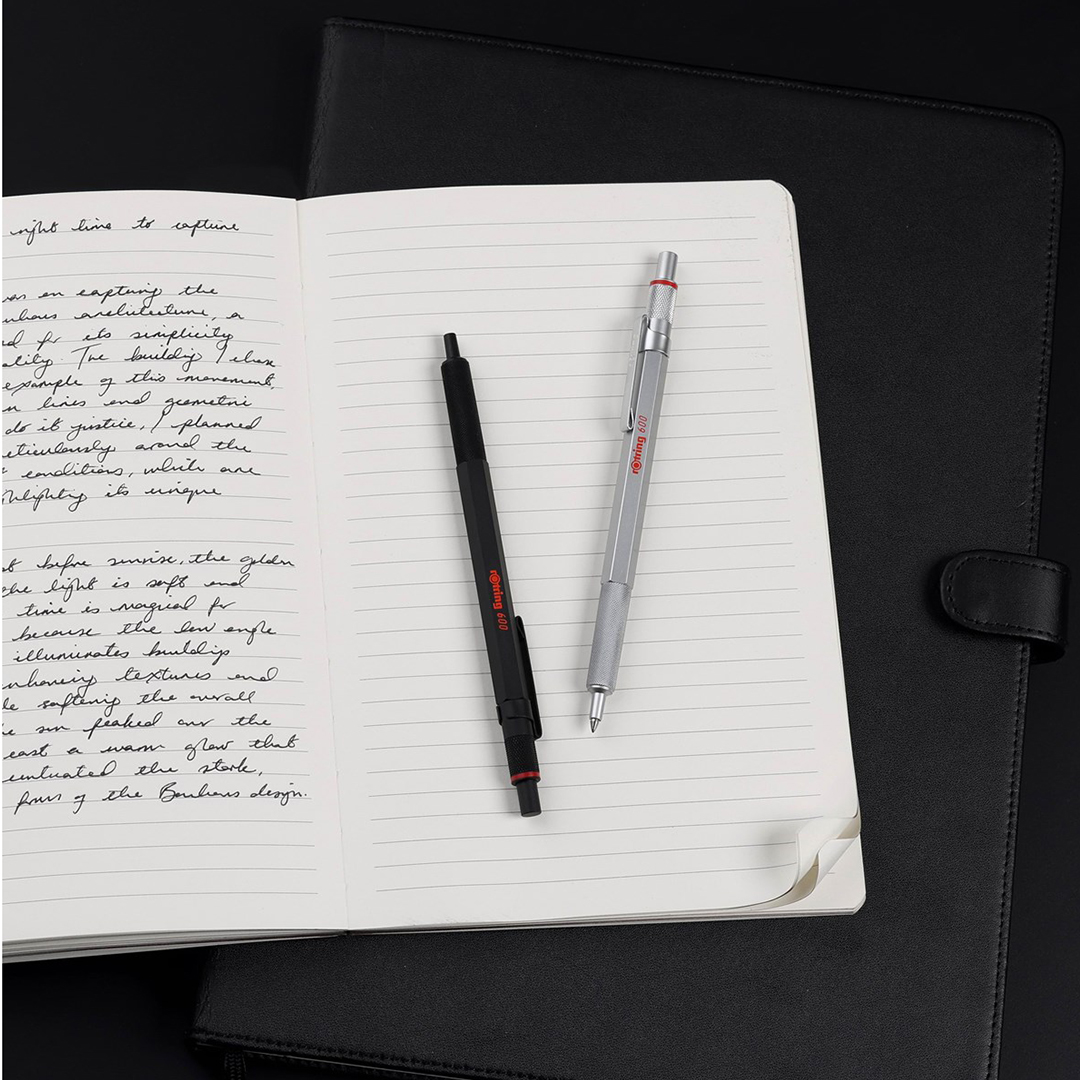 right time to capture
was on capturing the
uhaus architecture, a
ed for its simplicity
ality. The building I chose
example of this movement,
n lines and geometri
do it justice, I planned
eticulously around the
conditions, which are
hlighting its unique
st before sunrise, the golden
the light is soft and
time is magical for
because the low angle
illuminates buildings
nhancing textures and
le softening the overall
e sun peaked over the
cast a warm glow that
centuated the stark,
forms of the Bauhaus design.
rOtring 600
rOtring 600